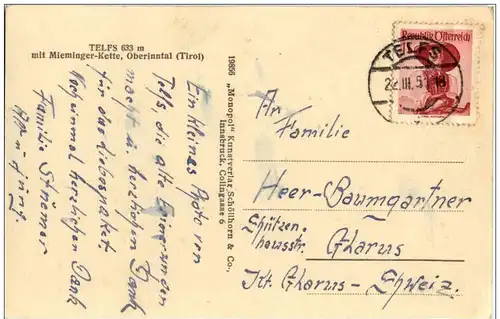 TELFS 633 m
mit Mieminger-Kette, Oberinntal (Tirol)
Ein kleines Photo von
Telfs die alte Erinerunden
macht u herzlichen Dank
für das Liebespaket
Noch einmal herzlichen Dank
Familie
Alt u Jung.
19856 „Monopol" Kunstverlag Schöllhorn & Co.,
Innsbruck, Colingasse 6
Republik Österreich
TELFS
22.III.51
An
Familie
Heer-Baumgartner
Schützen-
hausstr. Glarus
Kt. Glarus - Schweiz.